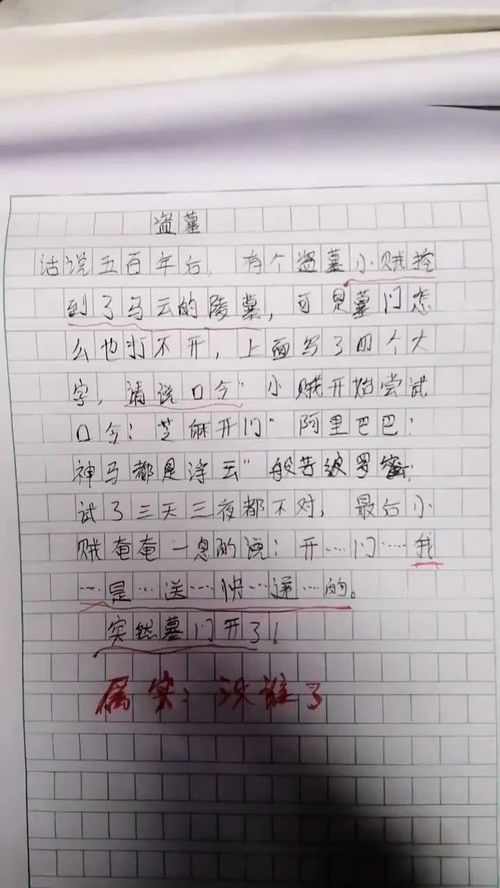 盗墓
话说五百年后，有个盗墓小贼挖
到了马云的陵墓，可是墓门怎
么也打不开，上面写了四个大
字，请说口令"小贼开始尝试
口令：芝麻开门"阿里巴巴！
神马都是浮云"般若波罗蜜；
试了三天三夜都不对，最后小
贼奄奄一息的说：开……门……我
……是…送…快…递…的。
突然墓门开了！
属实：没谁了